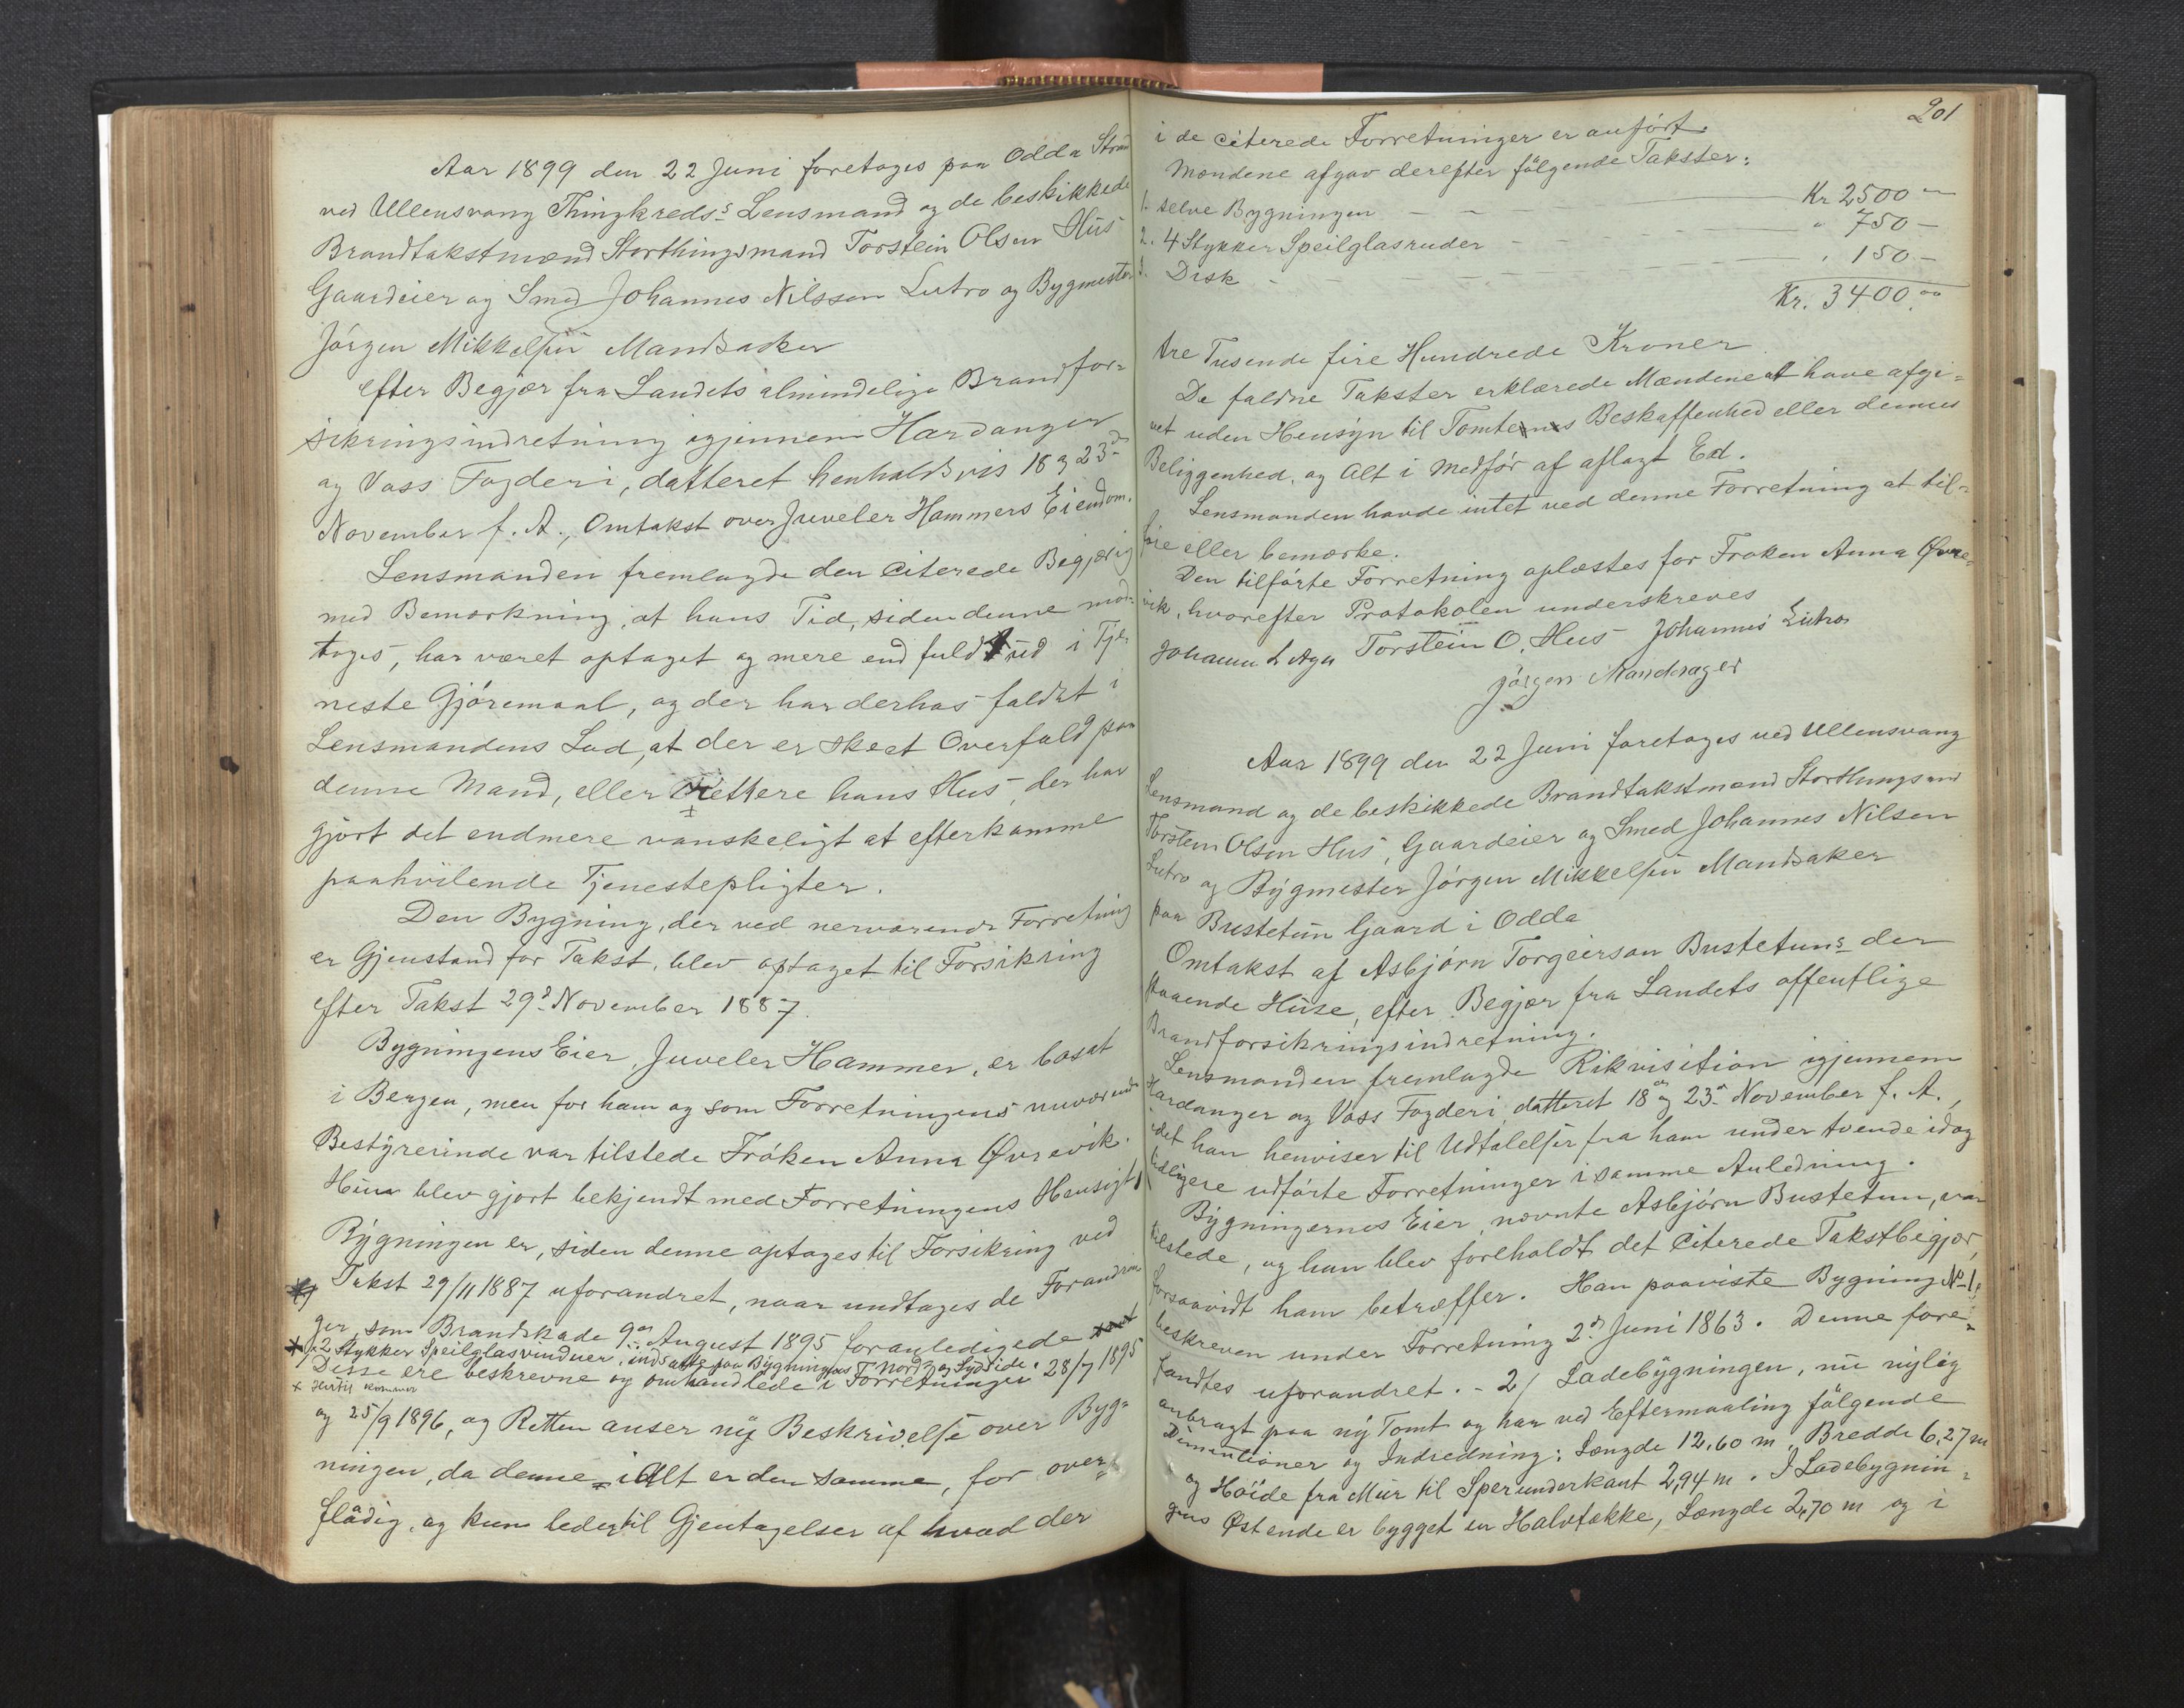 Aar 1899 den 22 Juni foretoges paa Odda Strand
ved Ullensvang Thingkreds's Lensmand og de beskikkede
Brandtakstmænd Storthingsmand Torstein Olsen Hus
Gaardeier og Smed Johannes Nilsson Lutro og Bygmester
Jörgen Mikkelsen Mandsaker
efter Begjær fra Landets almindelige Brandfor=
sikringsindretning igjennem Hardanger
og Voss Fogderi, datteret henholdsvis 18 og 23de
November f. A., Omtakst over Juveler Hammers Eiendom.
Lensmanden fremlagde den citerede Begjæring
med Bemærkning, at hans Tid, siden denne mod=
toges, har været optaget og mere end fuldt ud i Tje
neste Gjöremaal, og der har derhos faldet i
Lensmandens Lod, at der er skeet Overfald paa
denne Mand, eller rettere hans Hus, der har
gjort det endmere vanskeligt at efterkomme
paahvilende Tjenestepligter.
Den Bygning, der ved nerværende Forretning
er Gjenstand for Takst, blev optaget til Forsikring
efter Takst 29de November 1887.
Bygningens Eier, Juveler Hammer, er bosat
i Bergen, men for ham og som Forretningens nuværende
Bestyrerinde var tilstede Fröken Anna Øvrevik.
Hun blev gjort bekjendt med Forretningens Hensigt
Bygningen er, siden denne optoges til Forsikring ved
Takst 29/11 1887 uforandret, naar undtages de Forandrin
ger, som Brandskade 9de August 1895 foranledigede
2 Stykker Speilglasvinduer, indsatte paa Bygningens Nord og Sydside.
Disse ere beskrevne og omhandlede i Forretninger 28/7 1895
x Hertil kommer
og 25/9 1896, og Retten anser ny Beskrivelse over Byg=
ningen, da denne i Alt er den samme, for over=
flödig, og kun leder til Gjentagelser af hvad der
201
i de citerede Forretninger er anfört.
Mændene afgav derefter fölgende Takster:
1. selve Bygningen - - - Kr 2500 -
2. 4 Stykker Speilglasruder - - - " 750 -
3. Disk - - - " 150 -
Kr. 3400.00
tre Tusende fire Hundrede Kroner
De faldne Takster erklærede Mændene at have afgi=
vet uden Hensyn til Tomtens Beskaffenhed eller dennes
Beliggenhed, og Alt i Medför af aflagt Ed.
Lensmanden havde intet ved denne Forretning at til=
föie eller bemærke.
Den tilförte Forretning oplæstes for Fröken Anna Øvre=
vik, hvorefter Protokolen underskreves
Johann L Aga Torstein O. Hus Johannes Lutro
Jörgen Mandsager
Aar 1899 den 22 Juni foretoges ved Ullensvang
Lensmand og de beskikkede Brandtakstmænd Storthingsmd
Torstein Olsen Hus, Gaardeier og Smed Johannes Nilsen
Lutro og Bygmester Jörgen Mikkelsen Mandsaker
paa Bustetun Gaard i Odda
Omtakst af Asbjörn Torgeirson Bustetuns der
staaende Huse, efter Begjær fra Landets offentlige
Brandforsikringsindretning.
Lensmanden fremlagde Rikvisition igjennem
Hardanger og Voss Fogderi datteret 18 og 23de November f. A.,
idet han henviser til Udtalelser fra ham under tvende idag
tidligere udförte Forretninger i samme Anledning.
Bygningernes Eier, nævnte Asbjörn Bustetun, var
tilstede, og han blev foreholdt det citerede Takstbegjær,
forsaavidt ham betræffer. Han paaviste Bygning No 1,
beskreven under Forretning 2den Juni 1863. Denne fore=
fandtes uforandret. - 2/ Ladebygningen, nu nylig
anbragt paa ny Tomt og har ved Eftermaaling fölgende
Dimentioner og Indredning: Længde 12,60 m, Bredde 6,27 m
og Höide fra Mur til Sperunderkant 2,94 m. I Ladebygnin=
gens Østende er bygget en Halvtække, Længde 2,70 m og i